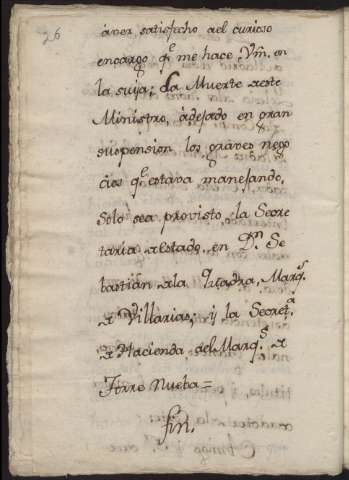 26
áver satisfecho ael curioso
encargo qᵉ me hace Vm. en
la suia; La Muerte aeste
Ministro, àdejado en gran
suspension los graves nego
cios qᵉ estava manejando,
solo sea provisto la Secre
taria aestado, en Dⁿ. Se
bastián ala Quadra, Marqˢ.
a Villarias; y la Secretᵃ.
a Hacienda, ael Marqˢ. a
Torre Nueba =
fin.